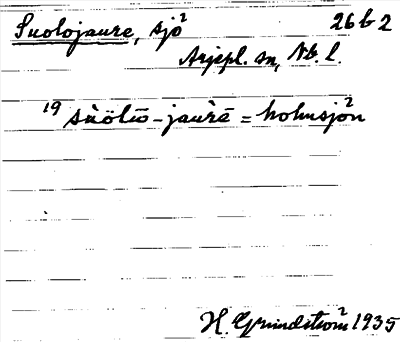 Suolojaure, sjö² 26 b 2
Arjepl. sn, Nb. l.
19 sùölō-jaùrē = holmsjön²
H. Grundström² 1935